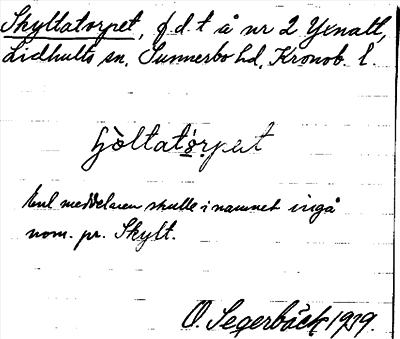 Skyltatorpet, f.d.t å nr 2 Yxnalt,
Lidhults sn, Sunnerbo hd, Kronob. l.
Enl meddelaren skulle i namnet ingå
nom. pr. Skylt.
O. Segerbäck 1929.